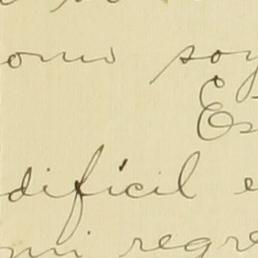 omo soy
Es
difícil e
mi regre